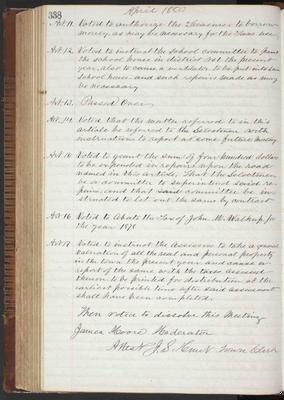 338
April
Art. 11. Voted to authorize the Treasurer to borrow
money as may be necessary for the Town use
Art. 12. Voted to instruct the school committee to
the school house in district No 1 the present
year, also to cause a ventilator to be put into
school house and such repairs made as may
be necessary
Art. 13. Passed Over
Art. 14. Voted that the matter referred to in this
article be referred to the Selectmen with
instructions to report at some future meeting
Art. 15 Voted to grant the sum of four hundred dollars
to be expended in repairs upon the road
named in this article. That the Selectmen
be a committee to superintend said re
pairs, and that said committee be in
structed to let out the same by contract
Art. 16 Voted to Abate the Tax of John M. for
the year
Art. 17 Voted to instruct the Assessors to take a
valuation of all the real and personal property
in the town the present year and cause a
report of the same with the taxes assessed
thereon to be printed for distribution at the
earliest possible time after said assessment
shall have been completed.
Then voted to dissolve this Meeting
James Moore Moderator
Attest J. S. Town Clerk